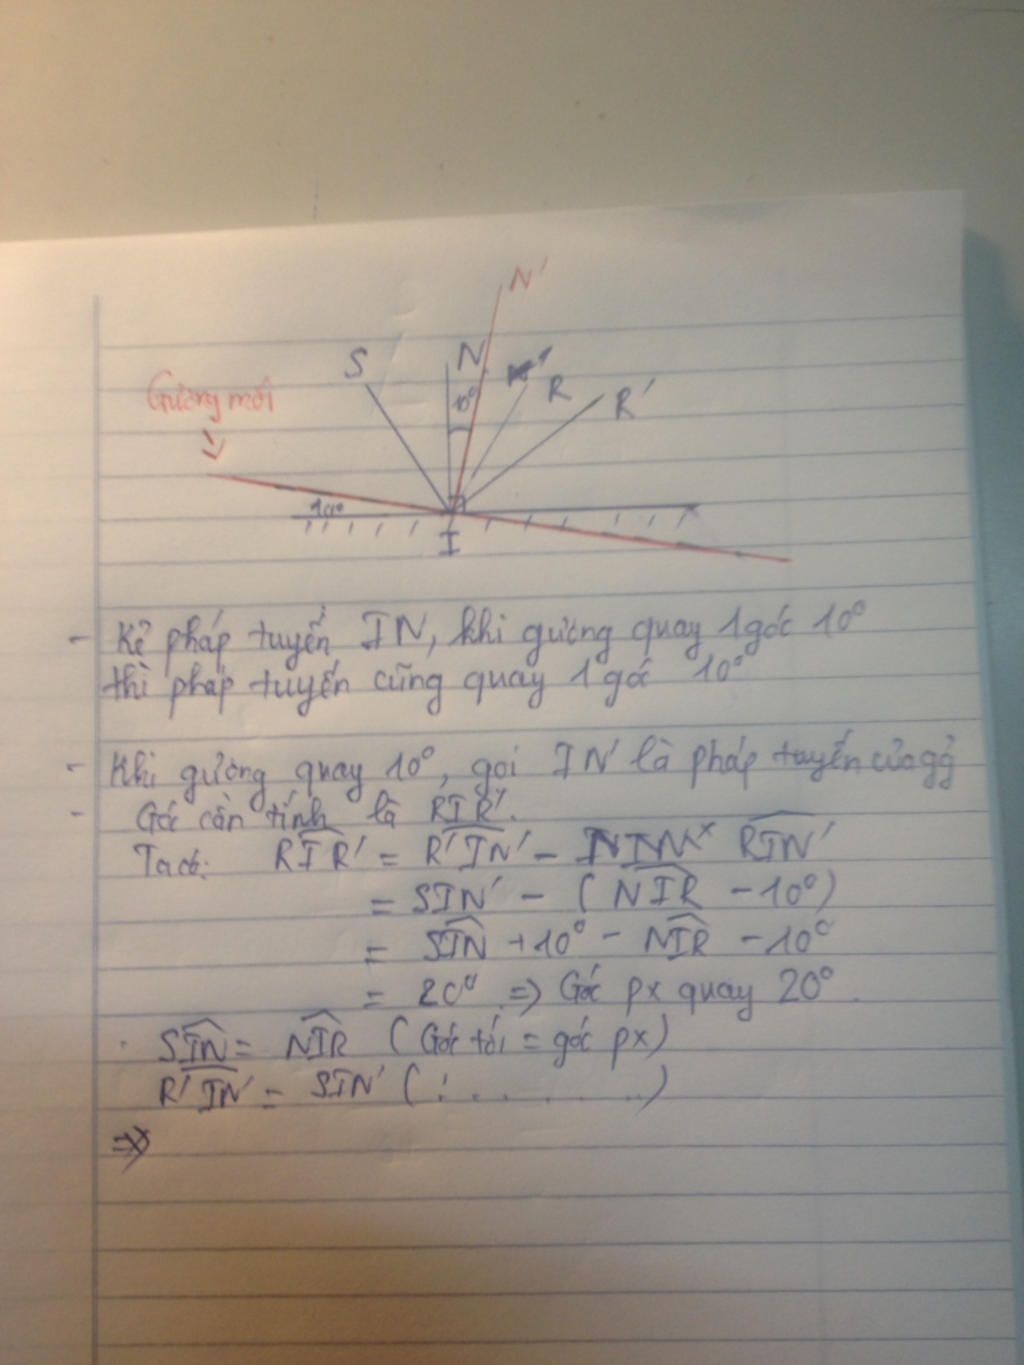 N'
S
N
R
R'
10°
Gương mới
10°
I
- Kẻ pháp tuyến IN, khi gương quay 1 góc 10°
thì pháp tuyến cũng quay 1 góc 10°
- Khi gương quay 10°, gọi IN' là pháp tuyến của gg
- Góc cần tính là RIR'.
Ta có: RIR' = R'IN' - RIN'
= SIN' - (NIR - 10°)
= SIN + 10° - NIR - 10°
= 20° => Góc px quay 20°.
. SIN = NIR (Góc tới = góc px)
R'IN' = SIN' (: . . . . . .)
=>